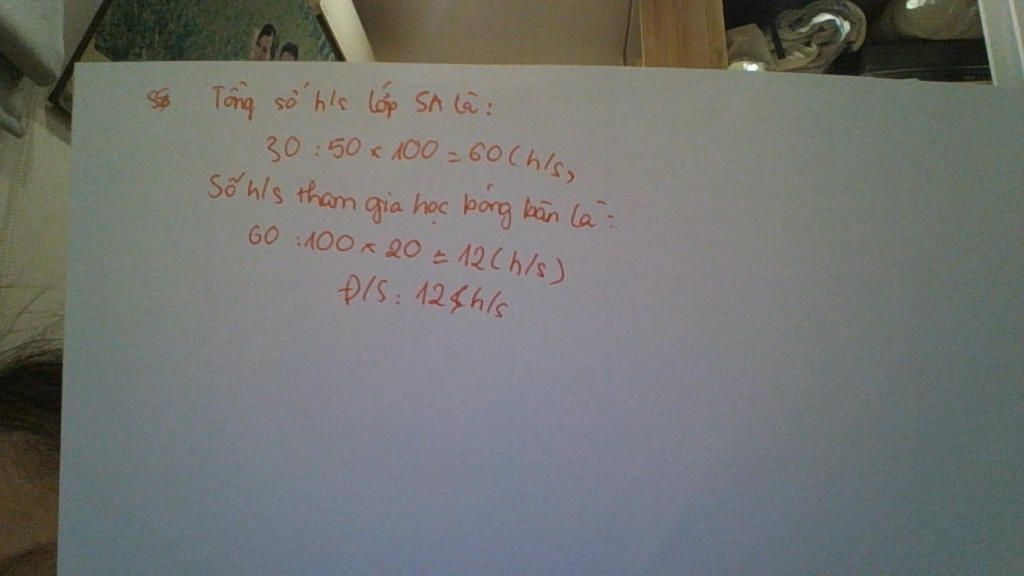 Tổng số h/s lớp 5A là:
30 : 50 x 100 = 60 (h/s)
Số h/s tham gia học bóng bàn là:
60 : 100 x 20 = 12 (h/s)
Đ/S : 12 h/s